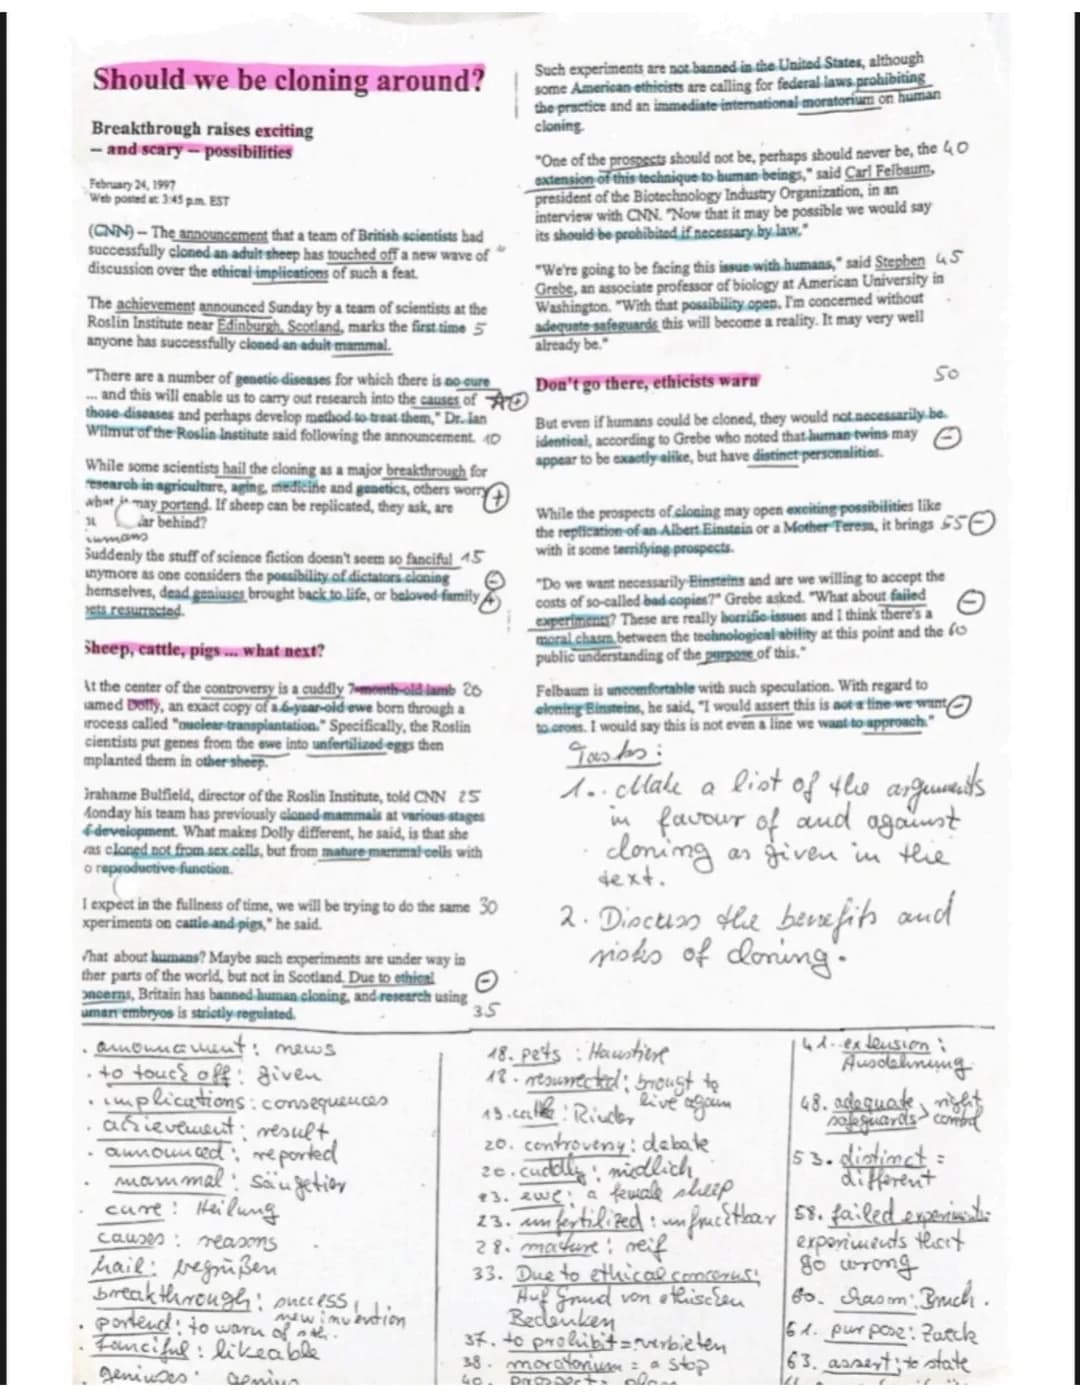 Should we be cloning around?
Breakthrough raises exciting
– and scary – possibilities
February 24, 1997
Web posted at: 3:45 p.m. EST
(CNN) – The announcement that a team of British scientists had
successfully cloned an adult sheep has touched off a new wave of
discussion over the ethical implications of such a feat.
The achievement announced Sunday by a team of scientists at the
Roslin Institute near Edinburgh, Scotland, marks the first time 5
anyone has successfully cloned an adult mammal.
"There are a number of genetic diseases for which there is no cure
... and this will enable us to carry out research into the causes of
those diseases and perhaps develop method to treat them," Dr. Ian
Wilmut of the Roslin Institute said following the announcement. 10
While some scientists hail the cloning as a major breakthrough for
research in agriculture, aging, medicine and genetics, others worry
what it may portend. If sheep can be replicated, they ask, are
ar behind?
umans
Suddenly the stuff of science fiction doesn't seem so fanciful 15
nymore as one considers the possibility of dictators cloning
hemselves, dead geniuses brought back to life, or beloved family
ets resurrected.
Sheep, cattle, pigs ... what next?
At the center of the controversy is a cuddly 7-month-old lamb 20
amed Dolly, an exact copy of a 6-year-old ewe born through a
rocess called "nuclear transplantation." Specifically, the Roslin
cientists put genes from the ewe into unfertilized eggs then
mplanted them in other sheep.
Grahame Bulfield, director of the Roslin Institute, told CNN 25
Monday his team has previously cloned mammals at various stages
f development. What makes Dolly different, he said, is that she
as cloned not from sex cells, but from mature mammal cells with
o reproductive function.
I expect in the fullness of time, we will be trying to do the same 30
xperiments on cattle and pigs," he said.
What about humans? Maybe such experiments are under way in
ther parts of the world, but not in Scotland. Due to ethical
oncerns, Britain has banned human cloning, and research using
uman embryos is strictly regulated. 35
Such experiments are not banned in the United States, although
some American ethicists are calling for federal laws prohibiting
the practice and an immediate international moratorium on human
cloning.
"One of the prospects should not be, perhaps should never be, the 40
extension of this technique to human beings," said Carl Felbaum,
president of the Biotechnology Industry Organization, in an
interview with CNN. "Now that it may be possible we would say
its should be prohibited if necessary by law."
"We're going to be facing this issue with humans," said Stephen 45
Grebe, an associate professor of biology at American University in
Washington. "With that possibility open, I'm concerned without
adequate safeguards this will become a reality. It may very well
already be."
Don't go there, ethicists warn 50
But even if humans could be cloned, they would not necessarily be
identical, according to Grebe who noted that human twins may
appear to be exactly alike, but have distinct personalities.
While the prospects of cloning may open exciting possibilities like
the replication of an Albert Einstein or a Mother Teresa, it brings 55
with it some terrifying prospects.
"Do we want necessarily Einsteins and are we willing to accept the
costs of so-called bad copies?" Grebe asked. "What about failed
experiments? These are really horrific issues and I think there's a
moral chasm between the technological ability at this point and the 60
public understanding of the purpose of this."
Felbaum is uncomfortable with such speculation. With regard to
cloning Einsteins, he said, "I would assert this is not a line we want
to cross. I would say this is not even a line we want to approach."
Tasks:
1. Make a list of the arguments
in favour of and against
cloning as given in the
text.
2. Discuss the benefits and
risks of cloning.
announcement: news
to touch off: given
implications: consequences
achievement: result
announced: reported
mammal: Säugetier
cure: Heilung
causes: reasons
hail: begrüßen
breakthrough: success,
new invention
portend: to warn of sth.
fanciful: likeable
geniuses: genius
18. pets: Haustiere
18. resurrected: brougt to
live again
19. cattle: Rinder
20. controversy: debate
20. cuddly: niedlich
23. ewe: a female sheep
23. unfertilized: unfruchtbar
28. mature: reif
33. Due to ethical concerns:
Auf Grund von ethischen
Bedenken
37. to prohibit = verbieten
38. moratorium = a stop
41. extension:
Ausdehnung
48. adequate right
safeguards control
53. distinct =
different
58. failed experiments:
experiments that
go wrong
60. chasm: Bruch.
61. purpose: Zweck
63. assert: to state